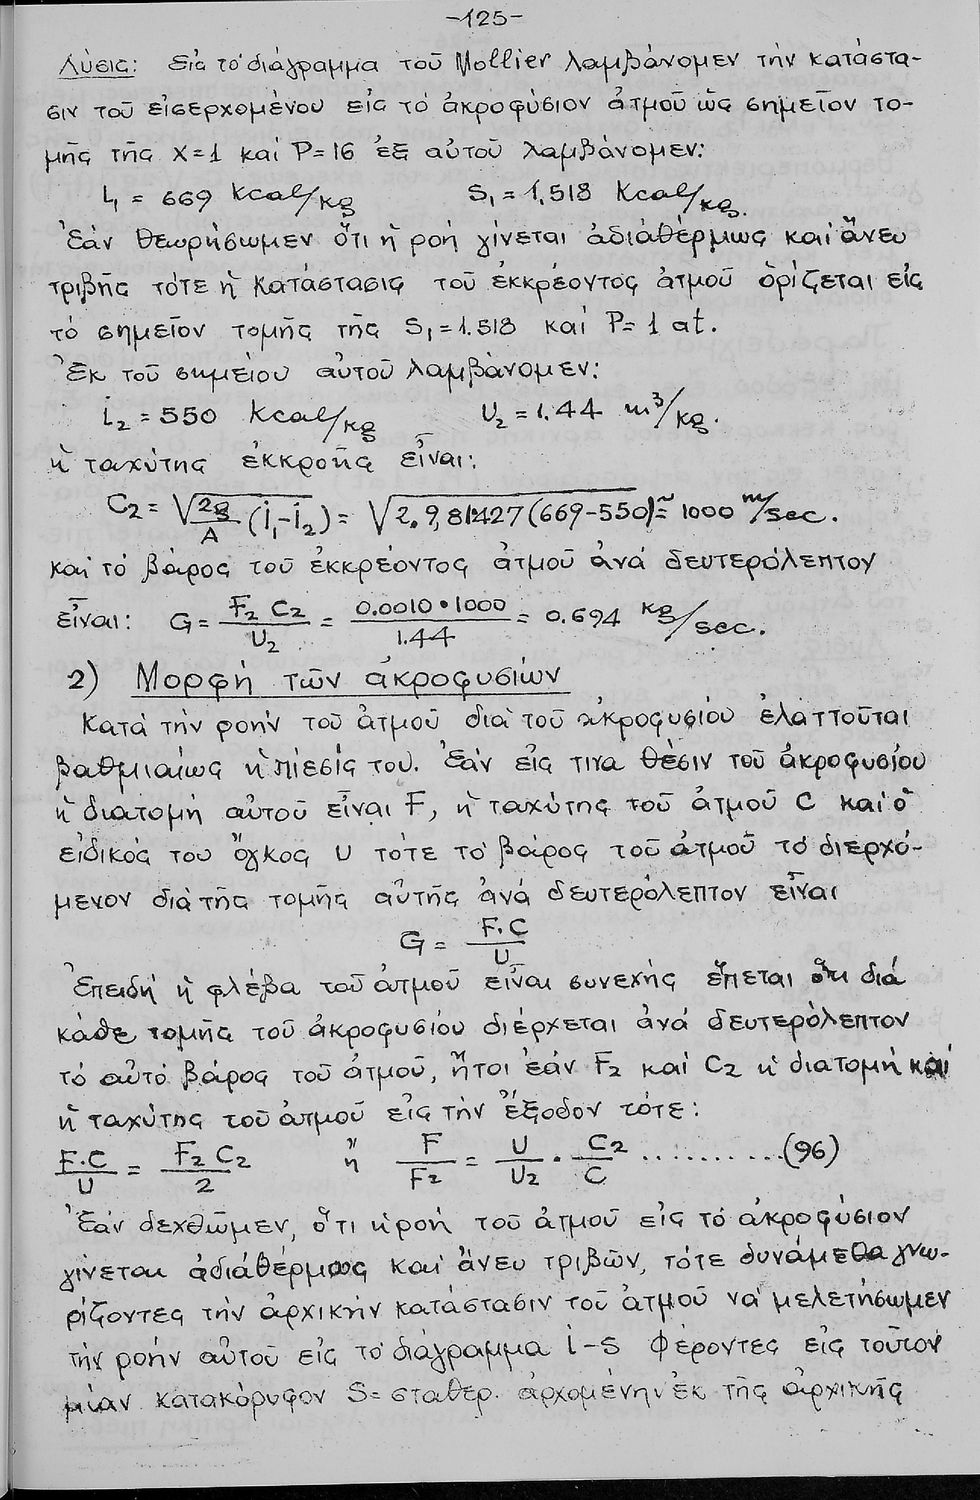 -125-
Λύσις: Εἰς τὸ διάγραμμα τοῦ Mollier λαμβάνομεν τὴν κατάστα-
σιν τοῦ εἰσερχομένου εἰς τὸ ἀκροφύσιον ἀτμοῦ ὡς σημεῖον το-
μῆς τῆς X=1 καὶ P=16 ἐξ αὐτοῦ λαμβάνομεν:
i₁ = 669 Kcal/kg S₁ = 1,518 Kcal/kg.
Ἐὰν θεωρήσωμεν ὅτι ἡ ροὴ γίνεται ἀδιαθέρμως καὶ ἄνευ
τριβῆς τότε ἡ κατάστασις τοῦ ἐκκρέοντος ἀτμοῦ ὁρίζεται εἰς
τὸ σημεῖον τομῆς τῆς S₁=1.518 καὶ P=1 at.
Ἐκ τοῦ σημείου αὐτοῦ λαμβάνομεν:
i₂ = 550 Kcal/kg U₂ = 1.44 m³/kg.
ἡ ταχύτης ἐκκροῆς εἶναι:
C₂ = √2g/A (i₁-i₂) = √2.9,81.427(669-550) ≈ 1000 m/sec.
καὶ τὸ βάρος τοῦ ἐκκρέοντος ἀτμοῦ ἀνὰ δευτερόλεπτον
εἶναι: G = F₂ C₂/U₂ = 0.0010·1000/1.44 = 0.694 kg/sec.
2) Μορφὴ τῶν ἀκροφυσίων
Κατὰ τὴν ροὴν τοῦ ἀτμοῦ διὰ τοῦ ἀκροφυσίου ἐλαττοῦται
βαθμιαίως ἡ πίεσίς του. Ἐὰν εἰς τινα θέσιν τοῦ ἀκροφυσίου
ἡ διατομὴ αὐτοῦ εἶναι F, ἡ ταχύτης τοῦ ἀτμοῦ C καὶ ὁ
εἰδικός του ὄγκος U τότε τὸ βάρος τοῦ ἀτμοῦ τὸ διερχό-
μενον διὰ τῆς τομῆς αὐτῆς ἀνὰ δευτερόλεπτον εἶναι
G = F.C/U
Ἐπειδὴ ἡ φλέβα τοῦ ἀτμοῦ εἶναι συνεχὴς ἕπεται ὅτι διὰ
κάθε τομῆς τοῦ ἀκροφυσίου διέρχεται ἀνὰ δευτερόλεπτον
τὸ αὐτὸ βάρος τοῦ ἀτμοῦ, ἤτοι ἐὰν F₂ καὶ C₂ ἡ διατομὴ καὶ
ἡ ταχύτης τοῦ ἀτμοῦ εἰς τὴν ἔξοδον τότε:
F.C/U = F₂ C₂/2 ἢ F/F₂ = U/U₂ . C₂/C ..........(96)
Ἐὰν δεχθῶμεν, ὅτι ἡ ροὴ τοῦ ἀτμοῦ εἰς τὸ ἀκροφύσιον
γίνεται ἀδιαθέρμως καὶ ἄνευ τριβῶν, τότε δυνάμεθα γνω-
ρίζοντες τὴν ἀρχικὴν κατάστασιν τοῦ ἀτμοῦ νὰ μελετήσωμεν
τὴν ροὴν αὐτοῦ εἰς τὸ διάγραμμα i-s φέροντες εἰς τοῦτον
μίαν κατακόρυφον S = σταθερ. ἀρχομένην ἐκ τῆς ἀρχικῆς